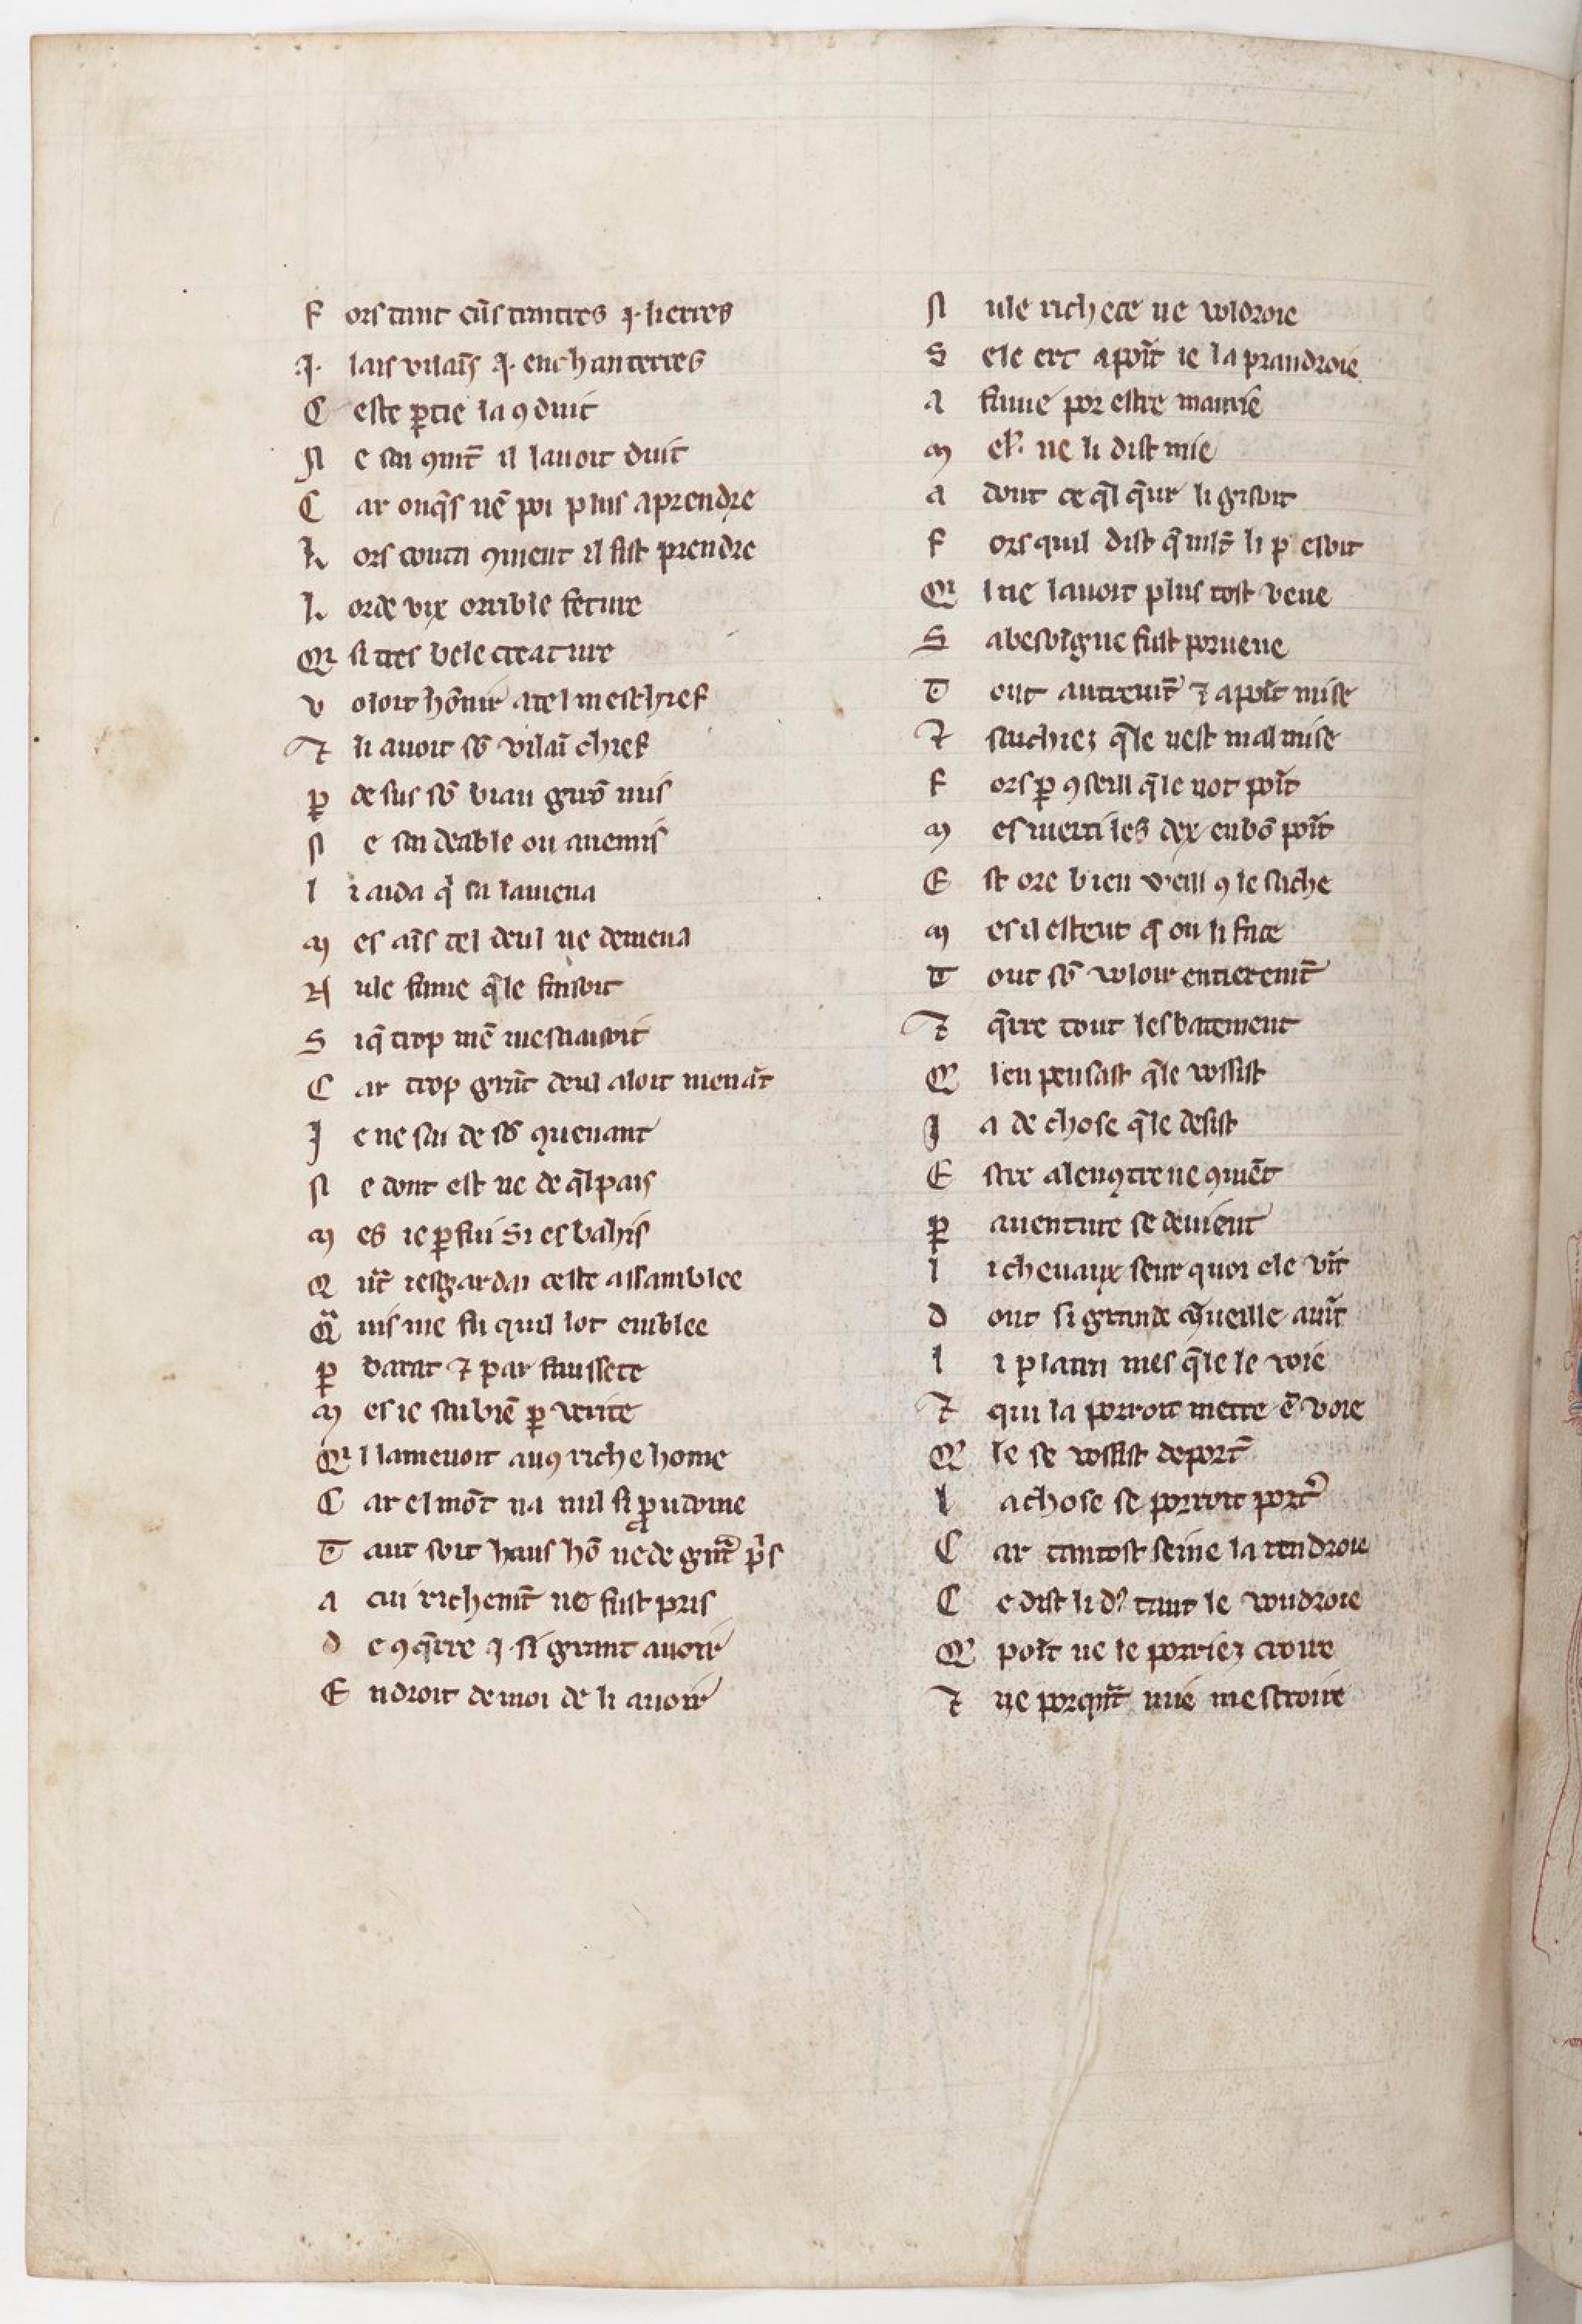 F ors tant cũs trantres .j. lierres
.j. lais vilaĩs .j. enchanterres
C este ꝑtie la ꝯduit
N e sai ꝯmt̃ il lauoit duit
C ar onq̃s nẽ poi plus aprendre
L ors conta ꝯment il fist prendre
L orde vix orrible feture
Qi si tres bele creature
V oloit hõnir a tel meschief
⁊ li auoit sõ vilaĩ chief
ꝑ de sus sõ biau girõ mis
N e sai deable ou anemis
L i aida qͥ la lamena
M es aĩs tel deul ne demena
N ule fame q̃le faisoit
S i q̃ trop mẽ mesaaisoit
C ar trop grãt deul aloit menãt
J e ne sai de sõ ꝯuenant
N e dont est ne de q̃l pais
M es ie ꝑ fui si esbahis
Q ñt iesgardai ceste assamblee
Qͣ uis me fu quil lot emblee
ꝑ barat ⁊ par faussete
M es ie sai biẽ ꝑ verite
Qi l lamenoit auꝯ riche home
C ar el mõt na nul si ꝓudome
T ant soit haus hõ ne de grãt pͥs
A cui richemt̃ ne fust pris
D e ꝯq̃rre .j. si grant auoir
E ndroit de moi de li auoir
N ule richece ne voldroie
S ele ert a poĩt ie la prandroie
A fame por estre mamie
M el. ne li dist mie
A dont ce q̃l q̃ur li gisoit
F ors quil dist q̃ mlt̃ li pesoit
Qi l ne lauoit plus tost veue
S a besoigne fust porueue
T out autremt̃ ⁊ a poĩt mise
⁊ sachiez q̃le nest mal mise
F ors ꝑ ꝯseill q̃le not poĩt
M es merci les dex en bõ poĩt
E st ore bien veill ꝯ le sache
M es il esteut q̃ on li face
T out sõ voloir entieremt̃
⁊ q̃rre tout lesbatement
Q len pensast q̃le vossist
J a de chose q̃le desist
E stre a lenꝯtre ne ꝯuiẽt
ꝑ auenture se deuient
L i cheuaux seur quoi ele vĩt
D ont si grande m̃ueille auĩt
L i plaira mes q̃le le voie
⁊ qui la porroit metre ẽ voie
Q le se vossist deport̃
L a chose se porroit port̃
C ar tantost seine la rendroie
C e dist li dꝰ tant le voudroie
Q poĩt ne le porriez croire
⁊ ne porqñt mie mescroire